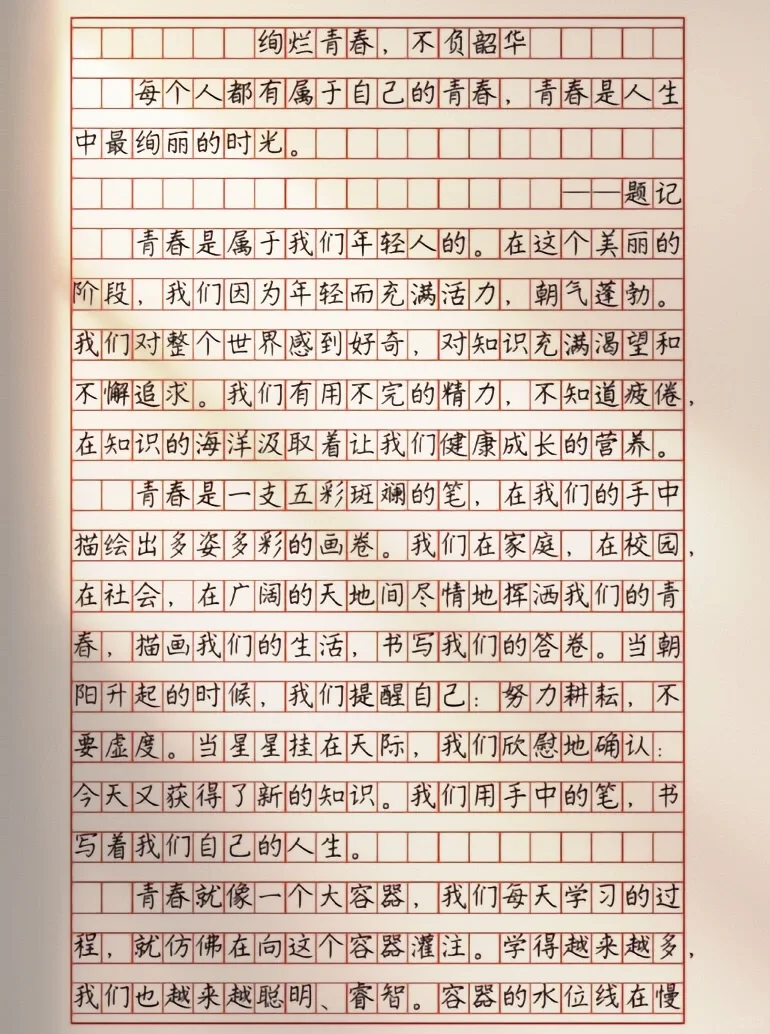 绚烂青春，不负韶华
每个人都有属于自己的青春，青春是人生
中最绚丽的时光。
——题记
青春是属于我们年轻人的。在这个美丽的
阶段，我们因为年轻而充满活力，朝气蓬勃。
我们对整个世界感到好奇，对知识充满渴望和
不懈追求。我们有用不完的精力，不知道疲倦，
在知识的海洋汲取着让我们健康成长的营养。
青春是一支五彩斑斓的笔，在我们的手中
描绘出多姿多彩的画卷。我们在家庭，在校园，
在社会，在广阔的天地间尽情地挥洒我们的青
春，描画我们的生活，书写我们的答卷。当朝
阳升起的时候，我们提醒自己：努力耕耘，不
要虚度。当星星挂在天际，我们欣慰地确认：
今天又获得了新的知识。我们用手中的笔，书
写着我们自己的人生。
青春就像一个大容器，我们每天学习的过
程，就仿佛在向这个容器灌注。学得越来越多，
我们也越来越聪明、睿智。容器的水位线在慢